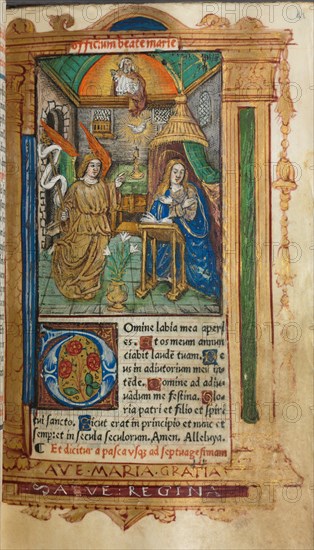 officium beate marie
Omine labia mea aperi
es. Et os meum annun
ciabit laudē tuam. De
us in adiutorium meu in
tēde. Domine ad adiu
uādum me festina. Glo
ria patri et filio et spiri
tui sancto. Sicut erat in principio et nunc et
semp: et in secula seculorum. Amen. Alleluya.
Et dicitur a pasca vsq; ad septuagesimam
AVE·MARIA·GRATIA
SALVE·REGINA